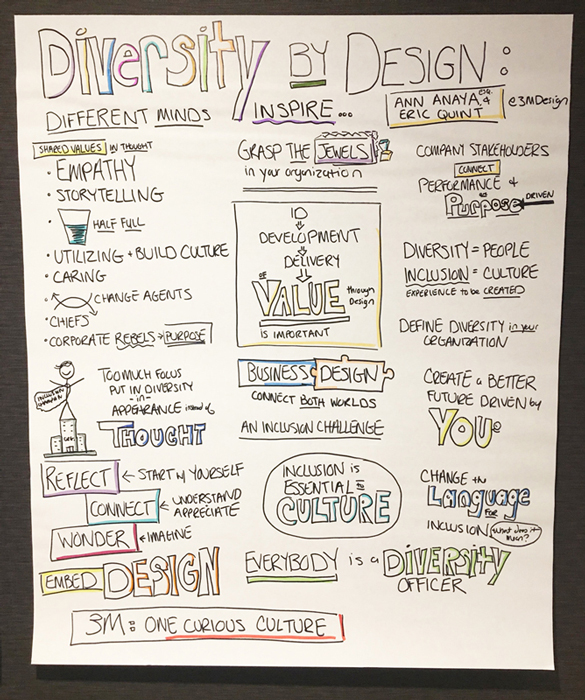 Diversity BY DESIGN:
DIFFERENT MINDS INSPIRE...
ANN ANAYA, esq. &
ERIC QUINT
@3MDesign
SHARED VALUES IN THOUGHT
• EMPATHY
• STORYTELLING
• HALF FULL
• UTILIZING + BUILD CULTURE
• CARING
• CHANGE AGENTS
• CHIEFS
• CORPORATE REBELS → PURPOSE
GRASP THE JEWELS
in your organization
ID
DEVELOPMENT
DELIVERY
OF VALUE through Design
IS IMPORTANT
COMPANY STAKEHOLDERS
CONNECT
PERFORMANCE +
PURPOSE DRIVEN
DIVERSITY = PEOPLE
INCLUSION = CULTURE
EXPERIENCE to be CREATED
DEFINE DIVERSITY in your
ORGANIZATION
INCLUSION
TOO MUCH FOCUS
PUT IN DIVERSITY
-in-
APPEARANCE instead of
THOUGHT
BUSINESS DESIGN
CONNECT BOTH WORLDS
AN INCLUSION CHALLENGE
CREATE a BETTER
FUTURE DRIVEN by
YOU
REFLECT ← START w/ YOURSELF
CONNECT ← UNDERSTAND
APPRECIATE
WONDER ← IMAGINE
EMBED DESIGN
INCLUSION IS
ESSENTIAL to
CULTURE
CHANGE the
Language
FOR
INCLUSION what does it mean?
EVERYBODY is a DIVERSITY
OFFICER
3M: ONE CURIOUS CULTURE